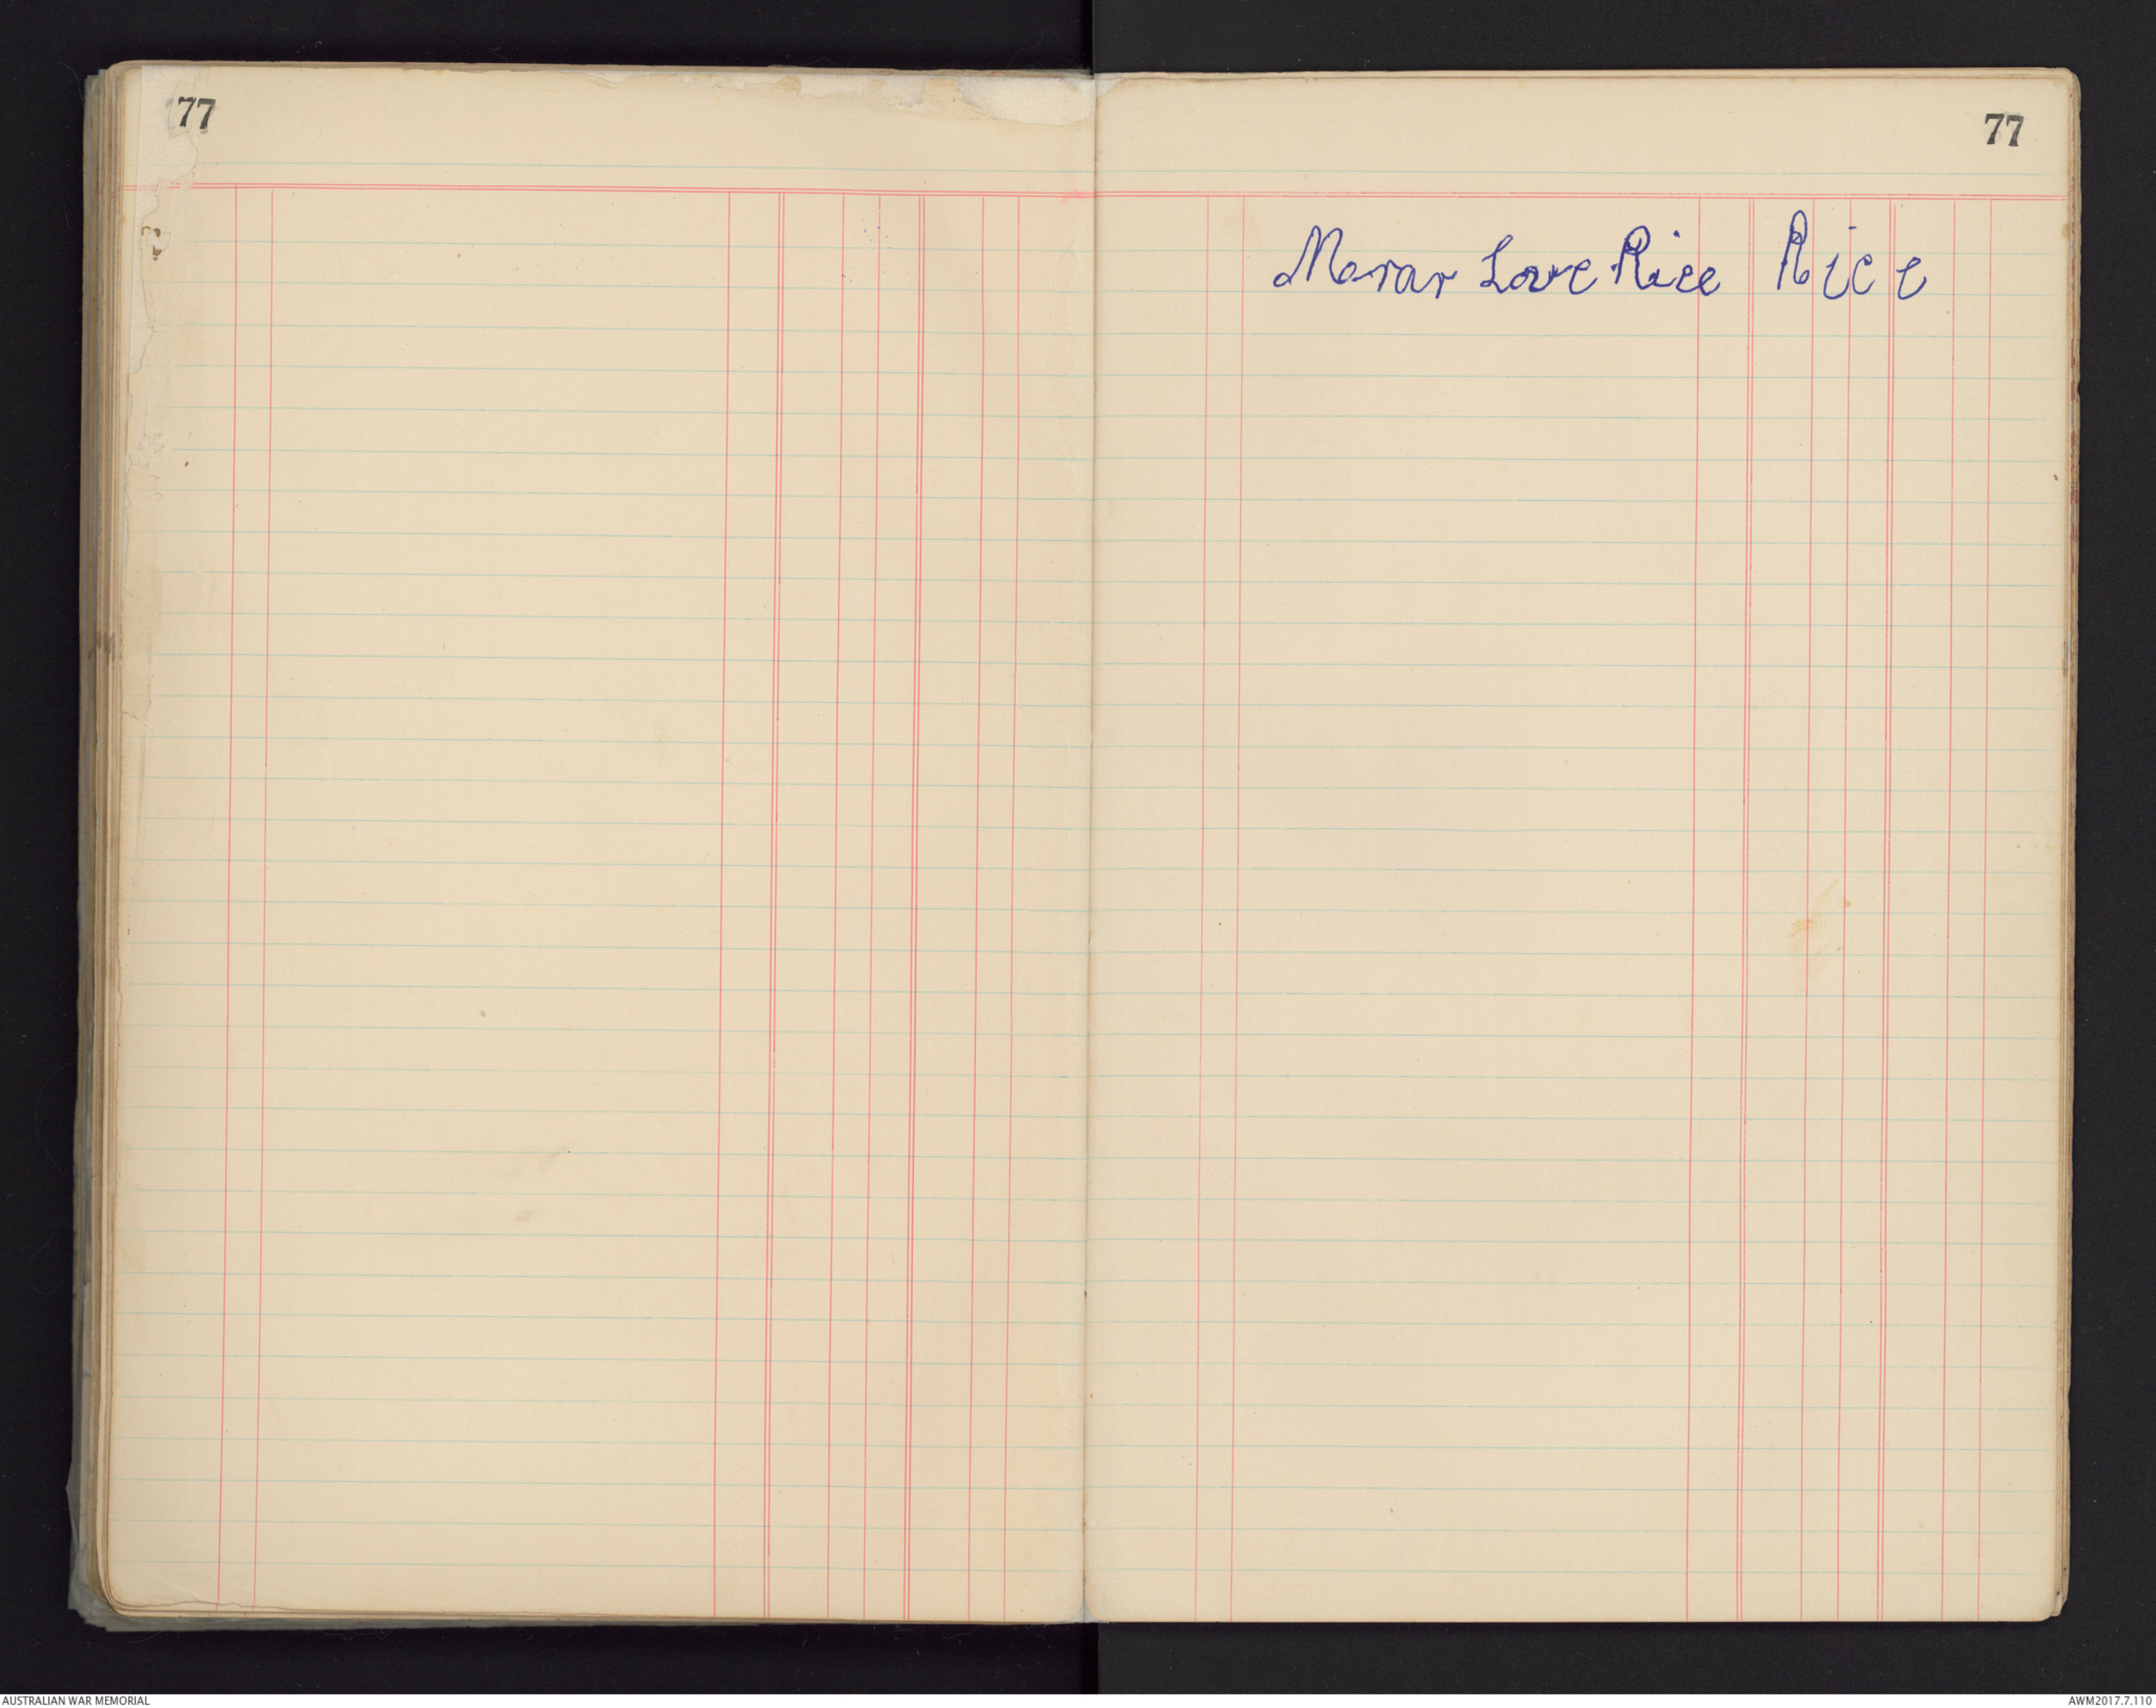 77
77
Morar Love Rice Rice
AUSTRALIAN WAR MEMORIAL
AWM2017.7.110